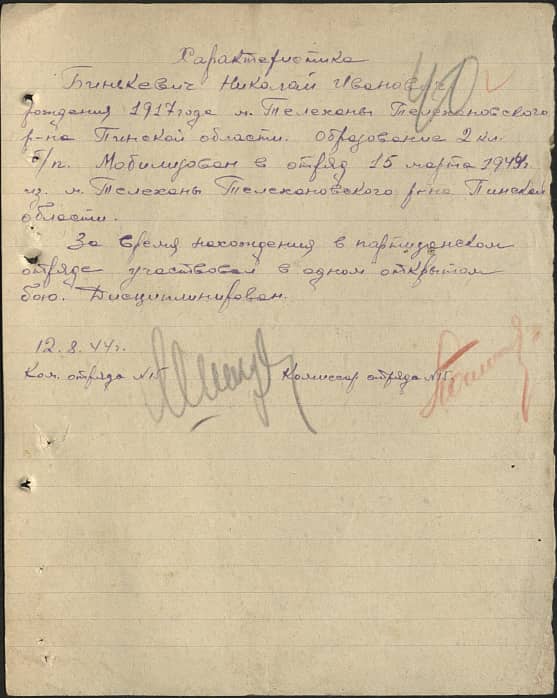 Характеристика
Бинкевич Николай Иванович
40
рождения 1917 года м. Телеханы Телехановского
р-на Пинской области. Образование 2 кл.
б/п. Мобилизован в отряд 15 марта 1944г.
из м. Телеханы Телехановского р-на Пинской
области.
За время нахождения в партизанском
отряде участвовал в одном открытом
бою. Дисциплинирован.
12.8.44г.
Ком. отряда №15 Комиссар отряда №15